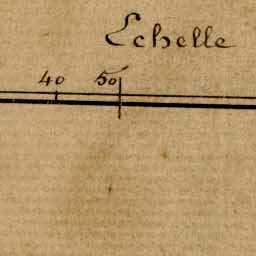 Echelle
40 50